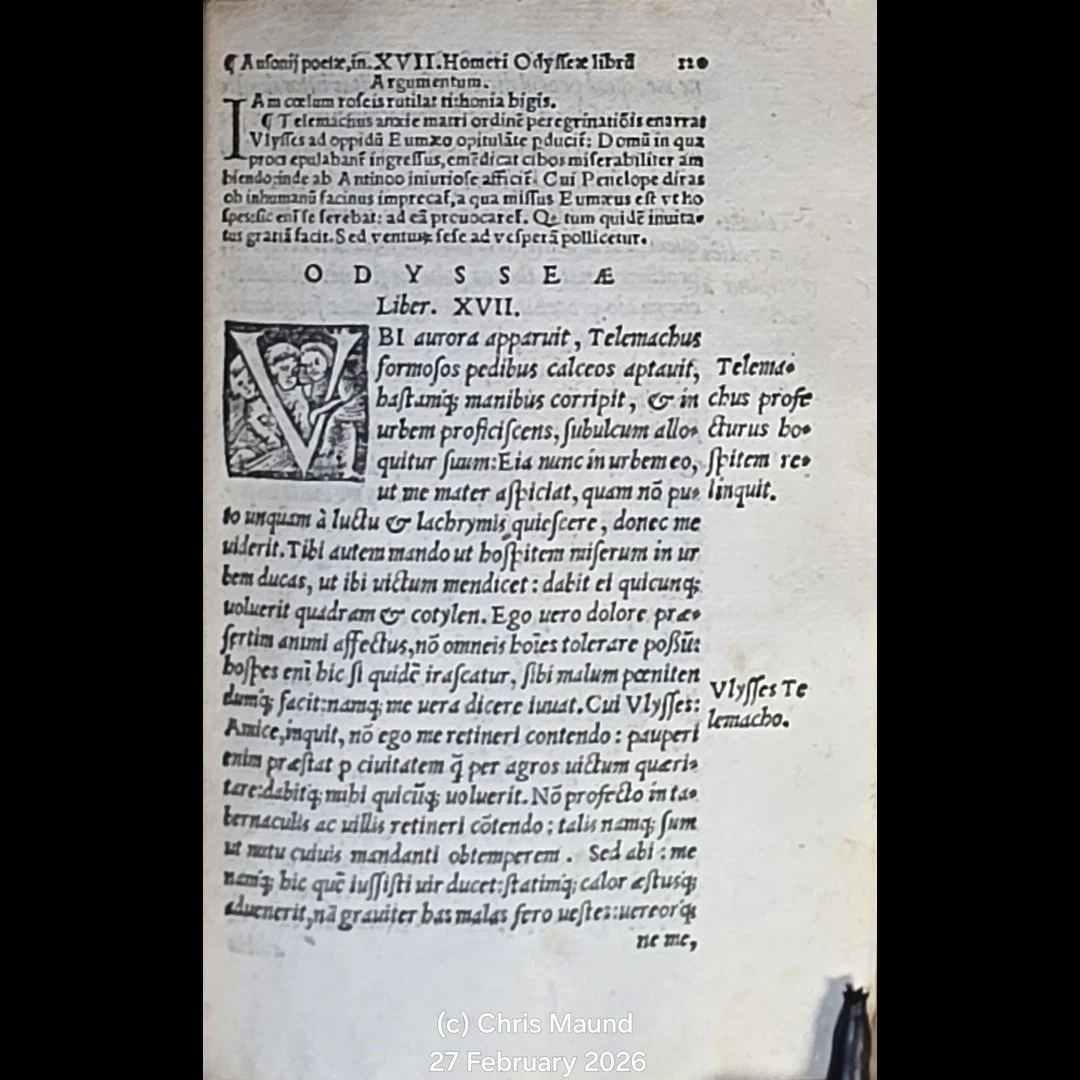 ¶ Ausonij poetæ, in. XVII. Homeri Odysseæ librū 120
Argumentum.
IAm cœlum roseis rutilat tithonia bigis.
¶ Telemachus anxie matri ordinē peregrinatiōis enarrat
Vlysses ad oppidū Eumæo opitulāte ꝓducit̃: Domū in qua
proci epulabant̃ ingressus, emēdicat cibos miserabiliter am
biendo: inde ab Antinoo iniuriose afficit̃. Cui Penelope diras
ob inhumanū facinus imprecat̃, a qua missus Eumæus est vt ho
spes, sic eni se ferebat: ad eā prouocaret̃. Q tum quidē inuita-
tus gratiā facit. Sed venturū sese ad vesperā pollicetur.
ODYSSEÆ
Liber. XVII.
VBI aurora apparuit, Telemachus
formosos pedibus calceos aptauit,
hastamq; manibus corripit, & in
urbem proficiscens, subulcum allo-
quitur suum: Eia nunc in urbem eo,
ut me mater aspiciat, quam nō pu-
to unquam à luctu & lachrymis quiescere, donec me
uiderit. Tibi autem mando ut hospitem miserum in ur
bem ducas, ut ibi uictum mendicet: dabit ei quicunq;
uoluerit quadram & cotylen. Ego uero dolore præ-
sertim animi affectus, nō omneis hoīes tolerare possū:
hospes eni hic si quidē irascatur, sibi malum pœniten
dumq; facit: namq; me uera dicere iuuat. Cui Vlysses:
Amice, inquit, nō ego me retineri contendo: pauperi
enim præstat p ciuitatem q̄ per agros uictum quæri-
tare: dabitq; mihi quicūq; uoluerit. Nō profecto in ta-
bernaculis ac uillis retineri cōtendo: talis namq; sum
ut nutu cuiuis mandanti obtemperem. Sed abi: me
namq; hic quē iussisti uir ducet: statimq; calor æstusq;
aduenerit, nā grauiter has malas fero uestes: uereorq;
ne me,
Telema-
chus profe
cturus ho-
spitem re-
linquit.
Vlysses Te
lemacho.
(c) Chris Maund
27 February 2026